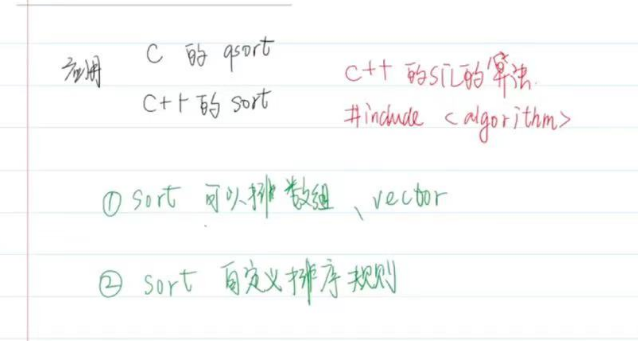 应用
C 的 qsort
C++ 的 sort
C++ 的STL的算法.
#include <algorithm>
① sort 可以排数组、vector
② sort 自定义排序规则